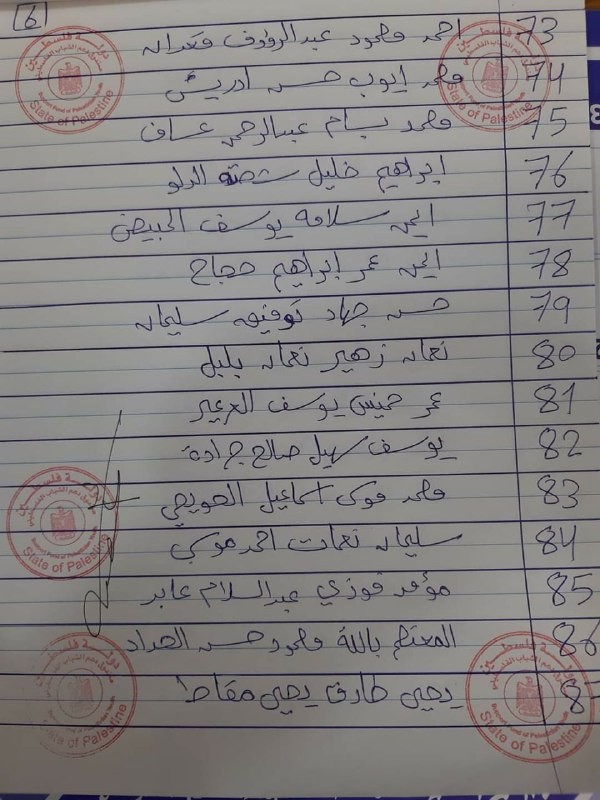 6
73 احمد محمود عبدالرؤوف
74 محمد ايوب حسن ادريس
75 محمد بسام عبدالرحمن عساف
76 ابراهيم خليل شحته الدلو
77 ايمن سلامه يوسف الجبيض
78 ايمن عمر ابراهيم حجاج
79 حسن جهاد توفيق سليمان
80 نعمان زهير نعمان بلبل
81 عمر خميس يوسف العرعير
82 يوسف سهيل صالح جرادة
83 محمد اسماعيل
84 سليمان نعمات احمد موسى
85 مؤمن فوزي عبدالسلام عابد
86 المعتصم بالله محمود حسن الحداد
8 يحيى طارق يحيى مقاط
دولة فلسطين
State of Palestine
State of Palestine
State of Palestine
State of Palestine
State of Palestine